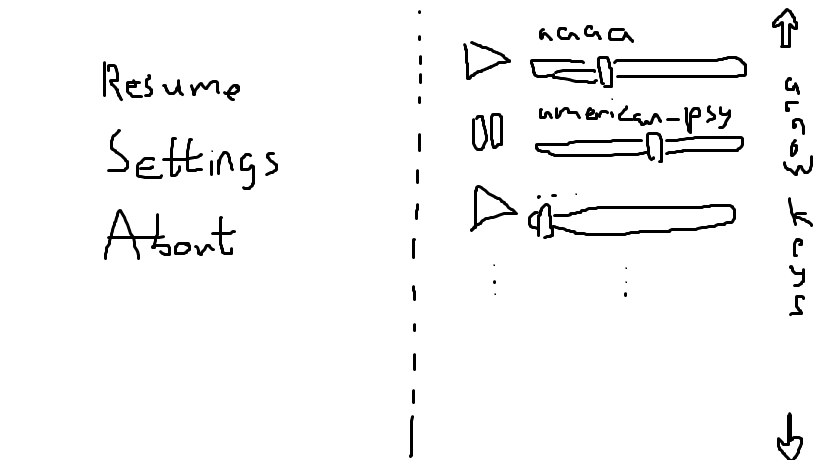 Resume
Settings
About
aaaa
american_psy
...
arrow keys